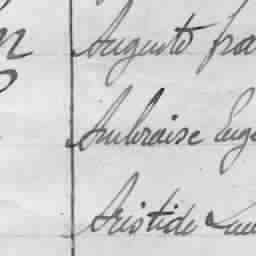 Auguste fra
Ambroise Eug
Aristide Lau